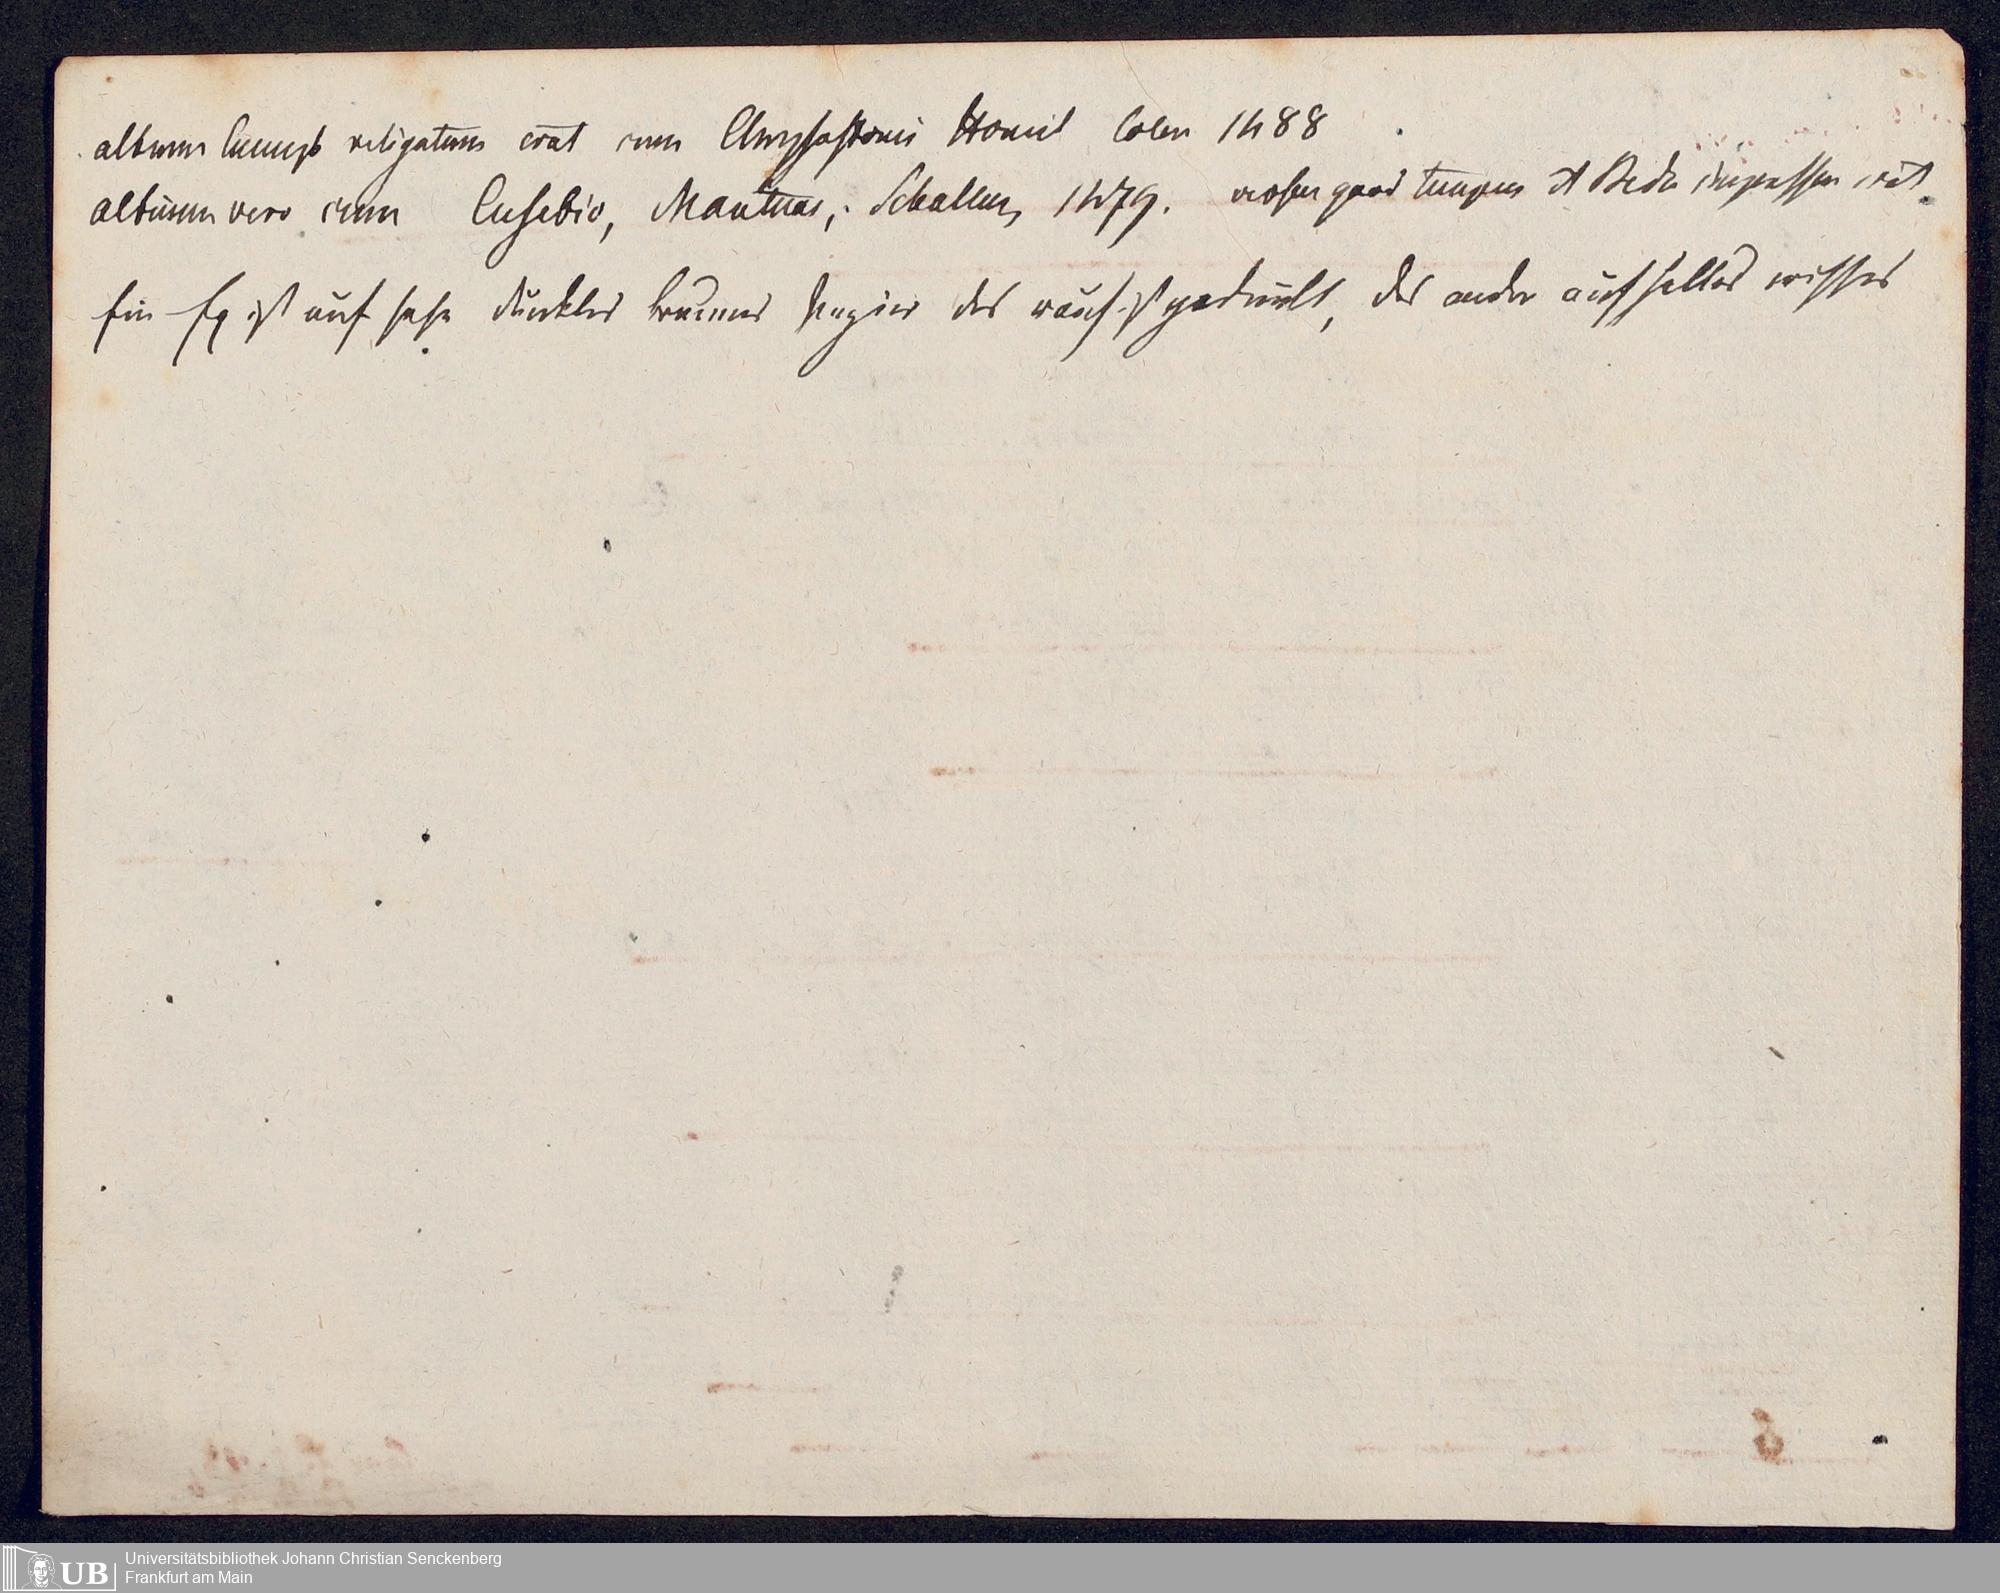 alterum Exempl religatum erat cum Chrysostomi Homil Colon 1488
alterum vero cum Eusebio, Mantuae, Schallus, 1479. et Beda impressum erat.
Ein Ex ist auf sehr dunkles braunes Papier das rauh ist gedruckt, das andere auf helles weisses
Universitätsbibliothek Johann Christian Senckenberg
Frankfurt am Main
UB